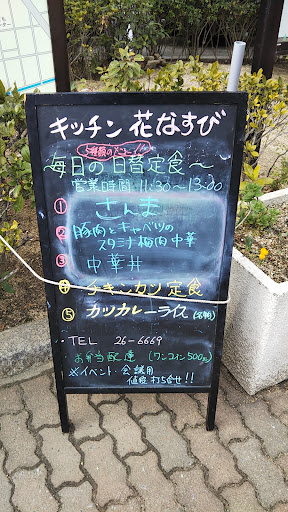 キッチン 花なすび
5種類のメニュー
毎日の日昔定食～
営業時間 11:30～13:00
① さんま
② 豚肉とキャベツの
スタミナ梅肉中華
③ 中華丼
④ チキンカツ定食
⑤ カツカレーライス
TEL 26-6669
お弁当配達 (ワンコイン500円)
※イベント・会議用
値段打ち合せ!!